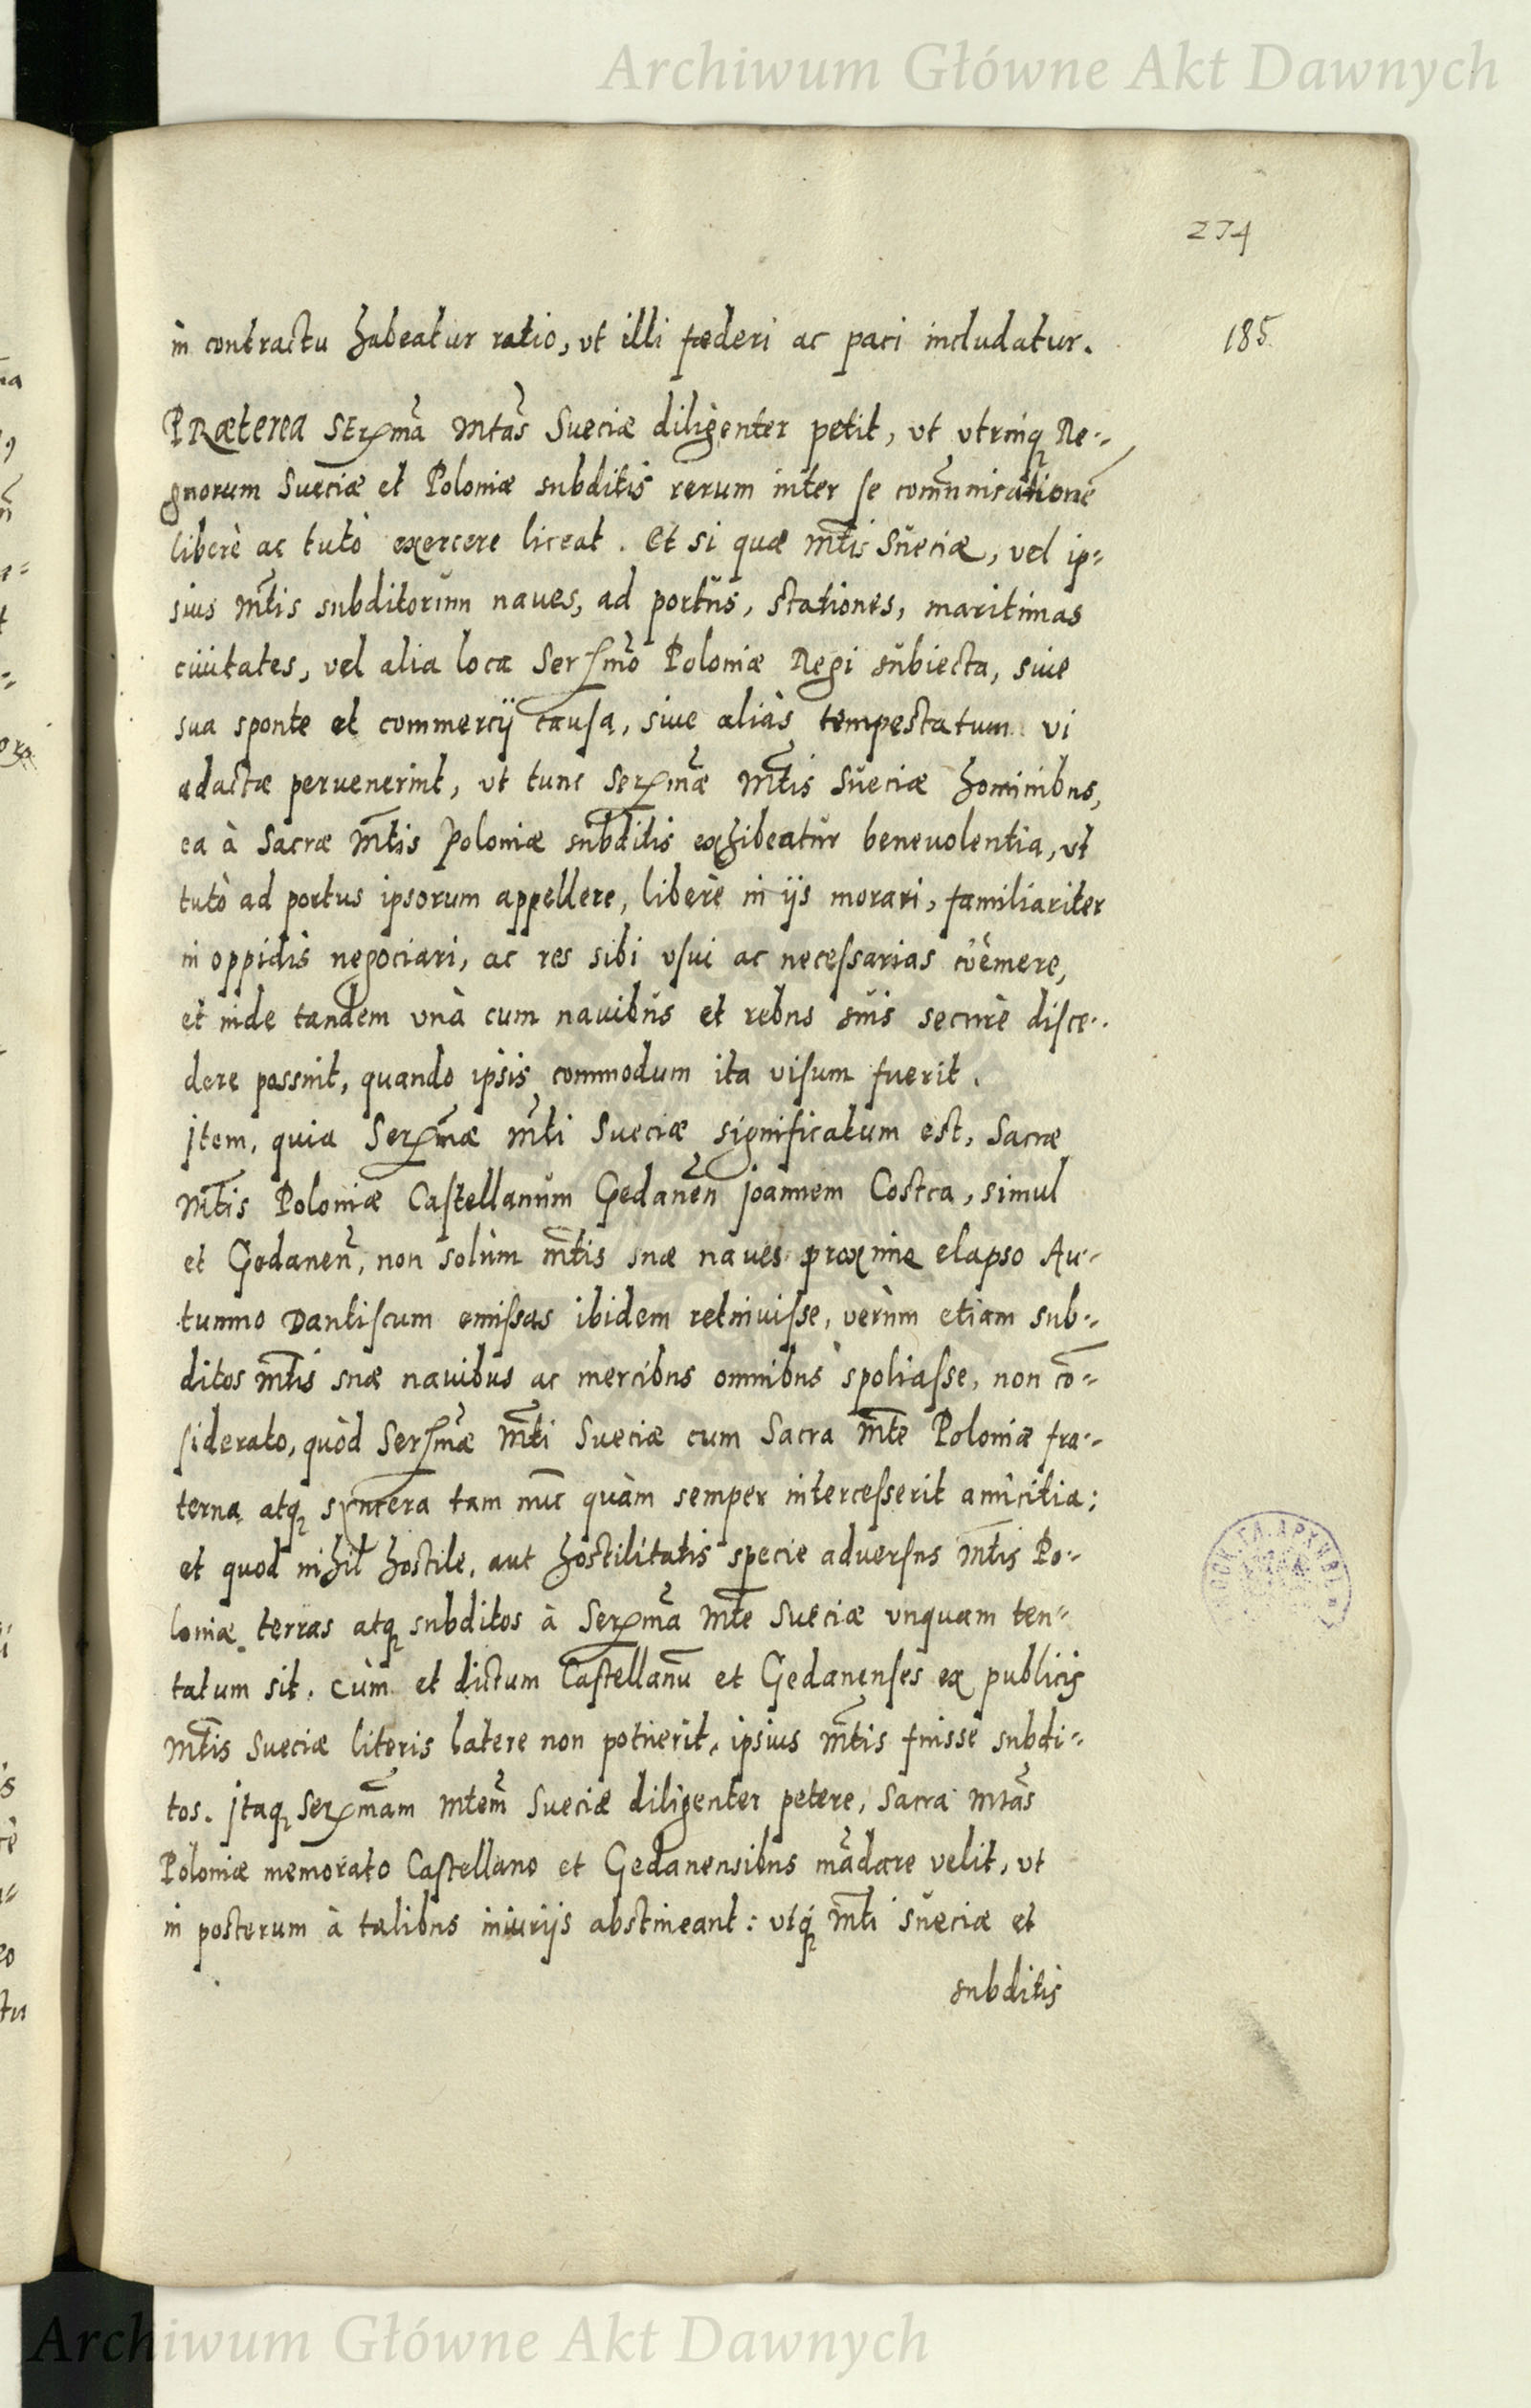 Archiwum Główne Akt Dawnych
274
185
in contractu habeatur ratio, vt illi fœderi ac paci includatur.
PRæterea Serxmã Mtãs Sueciæ diligenter petit, vt vtrinq Re-
gnorum Sueciæ et Poloniæ subditis rerum inter se comũnicationẽ
liberè ac tutò exercere liceat. Et si quæ Mtis Sueciæ, vel ip-
sius Mtis subditorum naues, ad portus, stationes, maritimas
ciuitates, vel alia loca Serſmõ Poloniæ Regi subiecta, siue
sua sponte et commercij causa, siue aliàs tempestatum vi
adactæ peruenerint, vt tunc Serxmæ Mtis Sueciæ hominibus,
ea à Sacræ Mtis Poloniæ subditis exhibeatur beneuolentia, vt
tutò ad portus ipsorum appellere, liberè in ijs morari, familiariter
in oppidis negociari, ac res sibi vsui ac necessarias cöemere,
et inde tandem vnà cum nauibus et rebus suis securè disce-
dere possint, quando ipsis commodum ita visum fuerit.
Jtem, quia Serxmæ Mti Sueciæ significatum est, Sacræ
Mtis Poloniæ Castellanum Gedanẽn Joannem Costca, simul
et Gedanen̄, non solùm Mtis suæ naues proxime elapso Au-
tumno Dantiscum emissas ibidem retinuisse, verùm etiam sub-
ditos Mtis suæ nauibus ac mercibus omnibus spoliasse, non cõ-
siderato, quòd Serſmæ Mti Sueciæ cum Sacra Mte Poloniæ fra-
terna atq syncera tam nũc quàm semper intercesserit amicitia;
et quod nihil hostile, aut hostilitatis specie aduersus Mtis Po-
loniæ terras atq subditos à Serxmã Mte Sueciæ vnquam ten-
tatum sit. Cùm et dictum Castellanũ et Gedanenses ex publicis
Mtis Sueciæ literis latere non potuerit, ipsius Mtis fuisse subdi-
tos. Jtaq Serxmam Mtem Sueciæ diligenter petere, Sacra Mtas
Poloniæ memorato Castellano et Gedanensibus mãdare velit, vt
in posterum à talibus iniurijs abstineant: vtq Mti Sueciæ et
subditis
Archiwum Główne Akt Dawnych